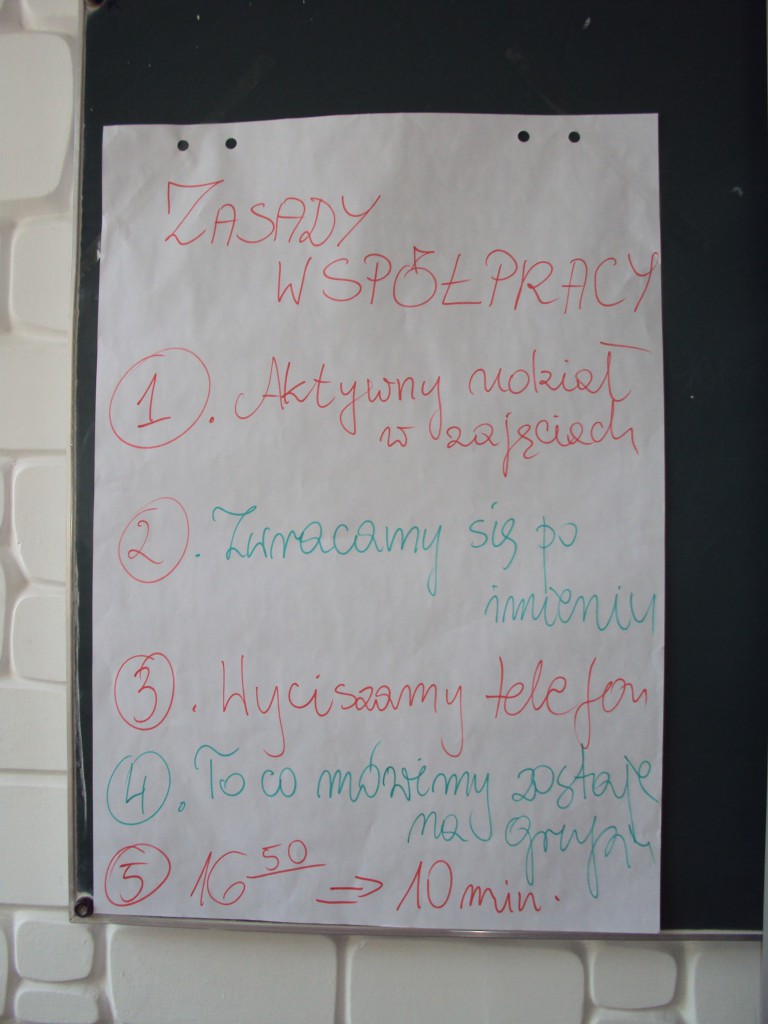 ZASADY
WSPÓŁPRACY
1. Aktywny udział
w zajęciach
2. Zwracamy się po
imieniu
3. Wyciszamy telefon
4. To co mówimy zostaje
na grupie
5 16 50 => 10 min.